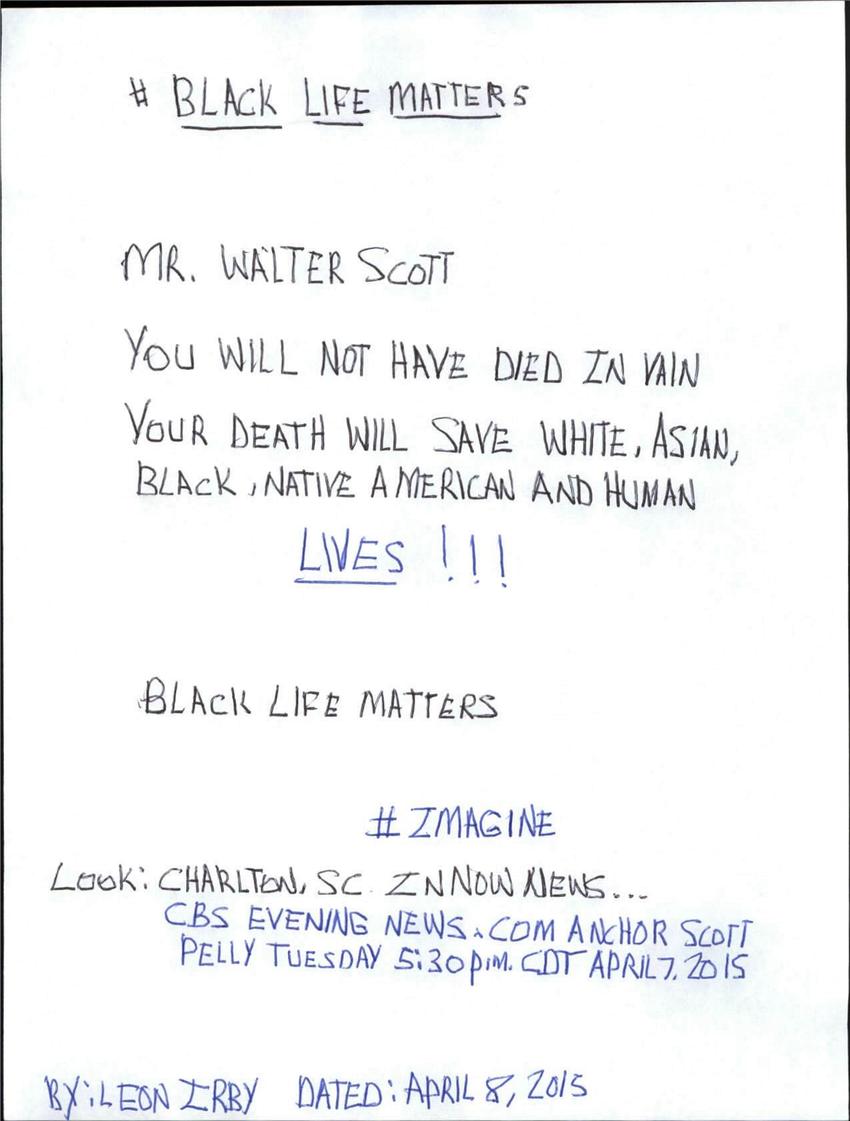 # BLACK LIFE MATTERS
MR. WALTER SCOTT
YOU WILL NOT HAVE DIED IN VAIN
YOUR DEATH WILL SAVE WHITE, ASIAN,
BLACK, NATIVE AMERICAN AND HUMAN
LIVES !!!
BLACK LIFE MATTERS
# IMAGINE
Look: CHARLTON, SC. IN NOW NEWS...
CBS EVENING NEWS.COM ANCHOR SCOTT
PELLY TUESDAY 5:30 p.M. CDT APRIL 7, 2015
BY: LEON IRBY DATED: APRIL 8, 2015